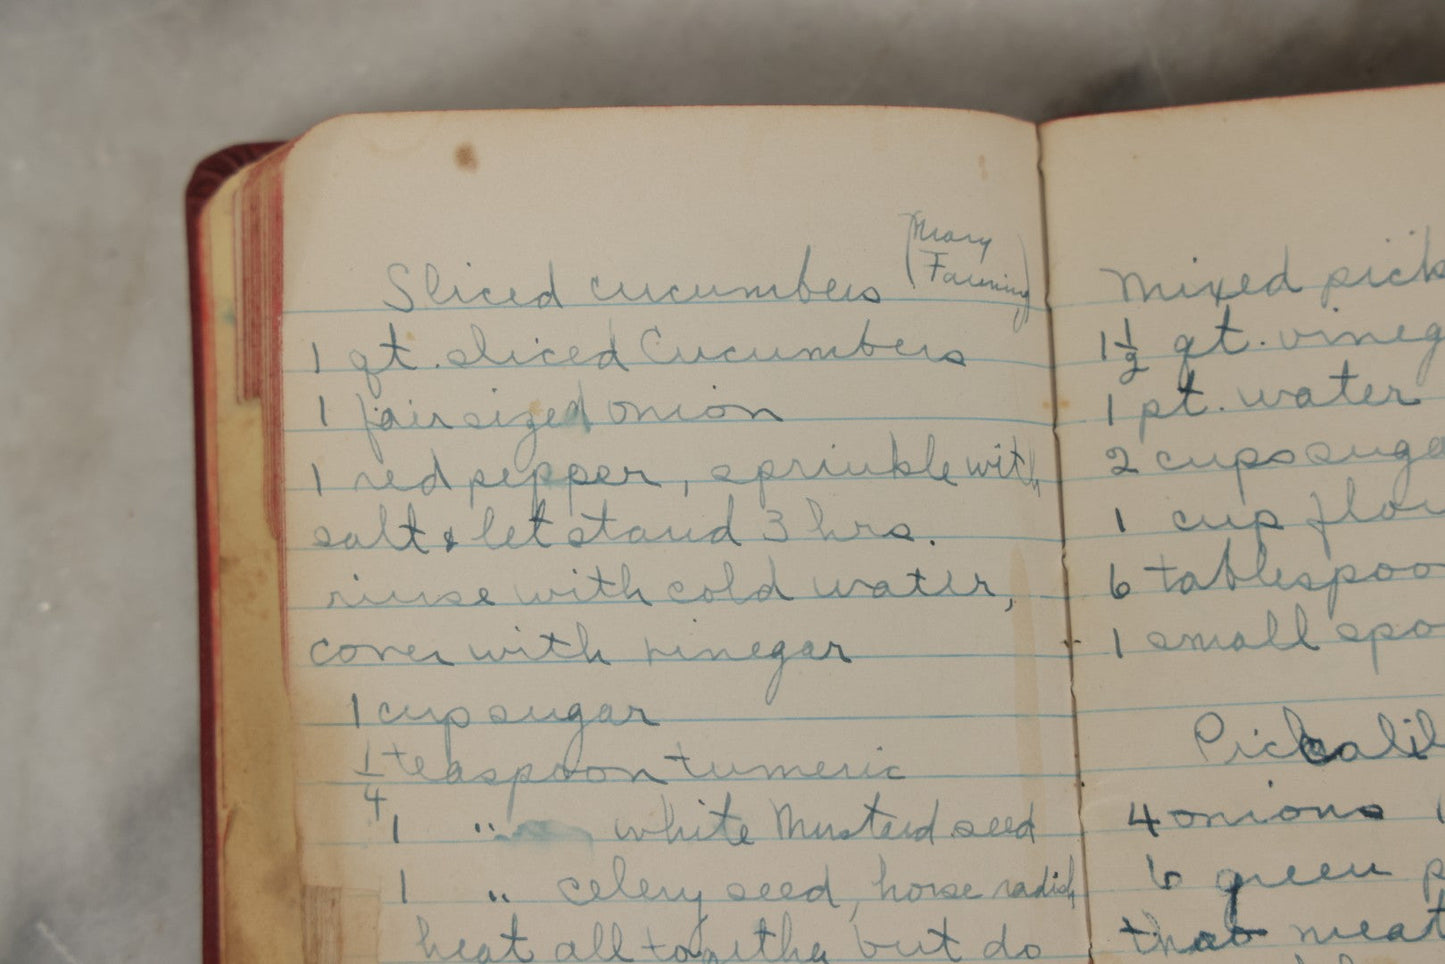 Sliced cucumbers (Mary
Fanning)
1 qt. sliced Cucumbers
1 fair sized onion
1 red pepper, sprinkle with
salt & let stand 3 hrs.
rinse with cold water,
cover with vinegar
1 cup sugar
1/4 teaspoon tumeric
1 " white Mustard seed
1 " celery seed, horse radish
heat all together but do
Mixed pick
1 1/2 qt. vineg
1 pt. water
2 cups suga
1 cup flou
6 tablespoo
1 small spo
Piccalil
4 onions
6 green p
thro meat